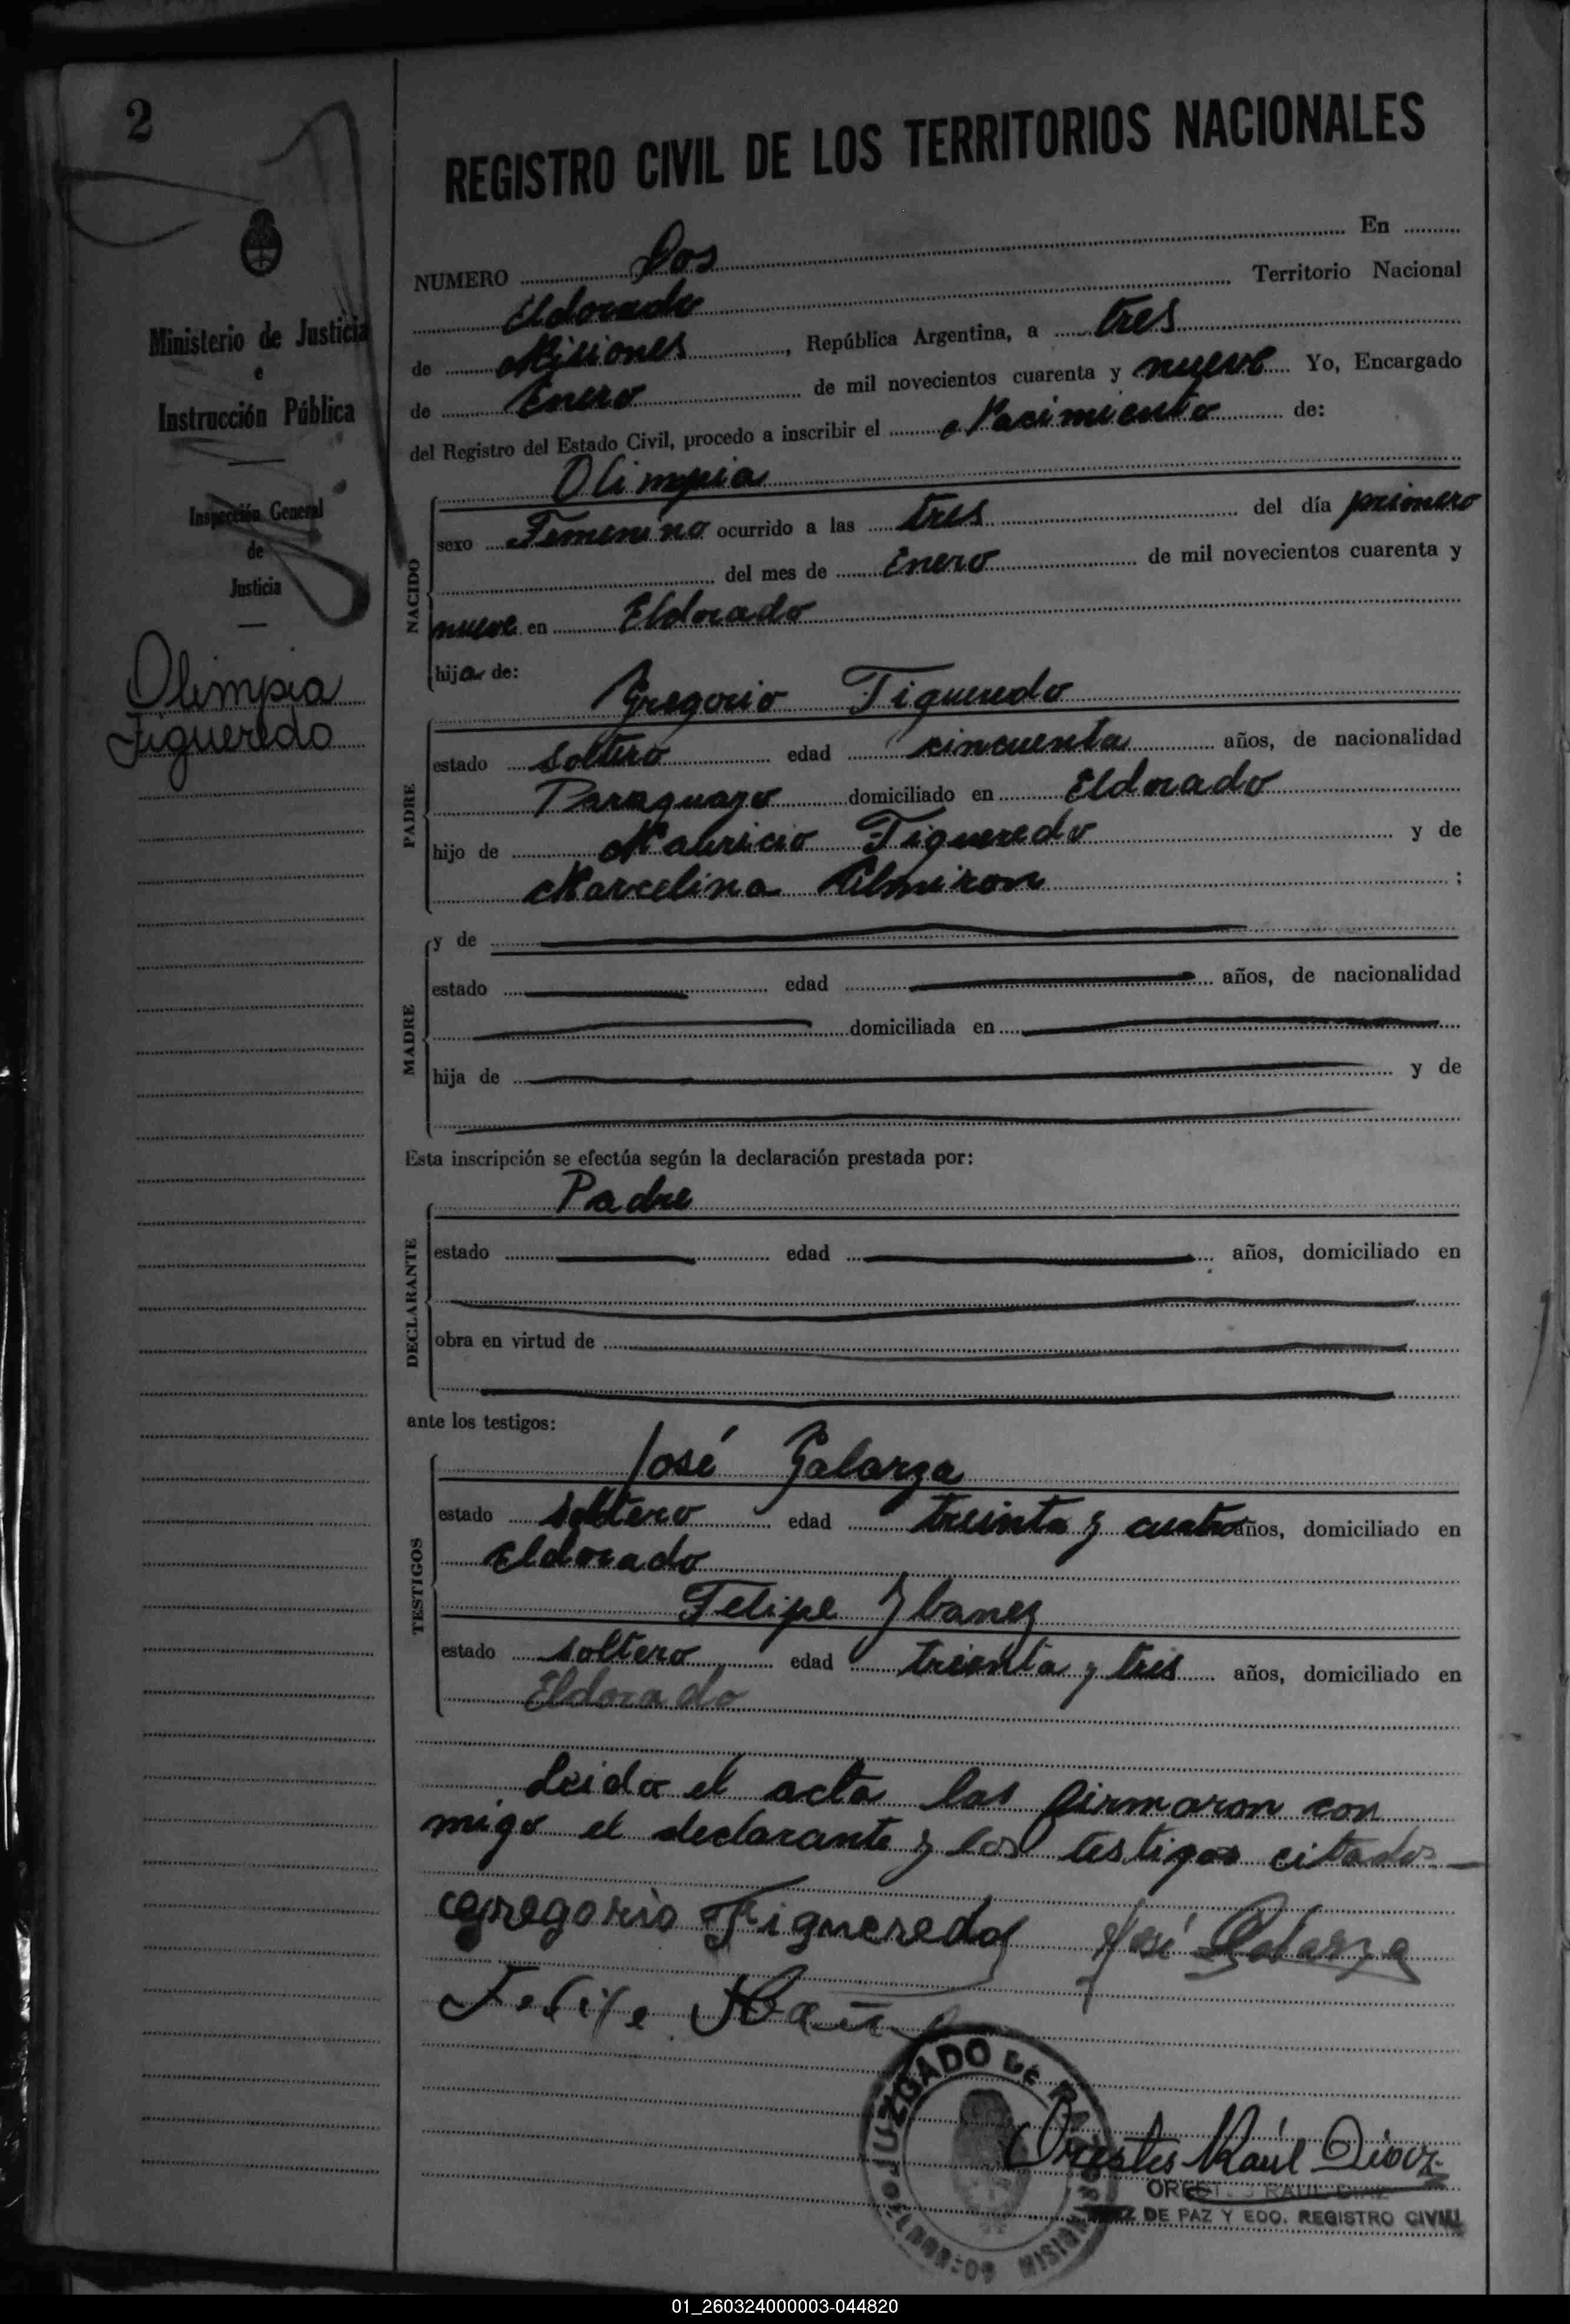 2
REGISTRO CIVIL DE LOS TERRITORIOS NACIONALES
Ministerio de Justicia
e
Instrucción Pública
Inspección General
de
Justicia
Olimpia
Figueredo
NUMERO Dos En
Eldorado Territorio Nacional
de Misiones, República Argentina, a tres
de Enero de mil novecientos cuarenta y nueve Yo, Encargado
del Registro del Estado Civil, procedo a inscribir el Nacimiento de:
NACIDO
Olimpia
sexo Femenino ocurrido a las tres del día primero
del mes de Enero de mil novecientos cuarenta y
nueve en Eldorado
hija de:
PADRE
Gregorio Figueredo
estado soltero edad cincuenta años, de nacionalidad
Paraguayo domiciliado en Eldorado
hijo de Mauricio Figueredo y de
Marcelina Almiron ;
MADRE
y de
estado edad años, de nacionalidad
domiciliada en
hija de y de
Esta inscripción se efectúa según la declaración prestada por:
DECLARANTE
Padre
estado edad años, domiciliado en
obra en virtud de
ante los testigos:
TESTIGOS
José Galarza
estado soltero edad treinta y cuatro años, domiciliado en
Eldorado
Felipe Ybanez
estado soltero edad treinta y tres años, domiciliado en
Eldorado
Leida el acta las firmaron con
migo el declarante y los testigos citados
Gregorio Figueredo José Galarza
Felipe
JUZGADO DE PAZ
ELDORADO MISIONES
Orestes Raúl Diaz
ORESTES RAUL DIAZ
JUEZ DE PAZ Y EDO. REGISTRO CIVIL
01_260324000003-044820